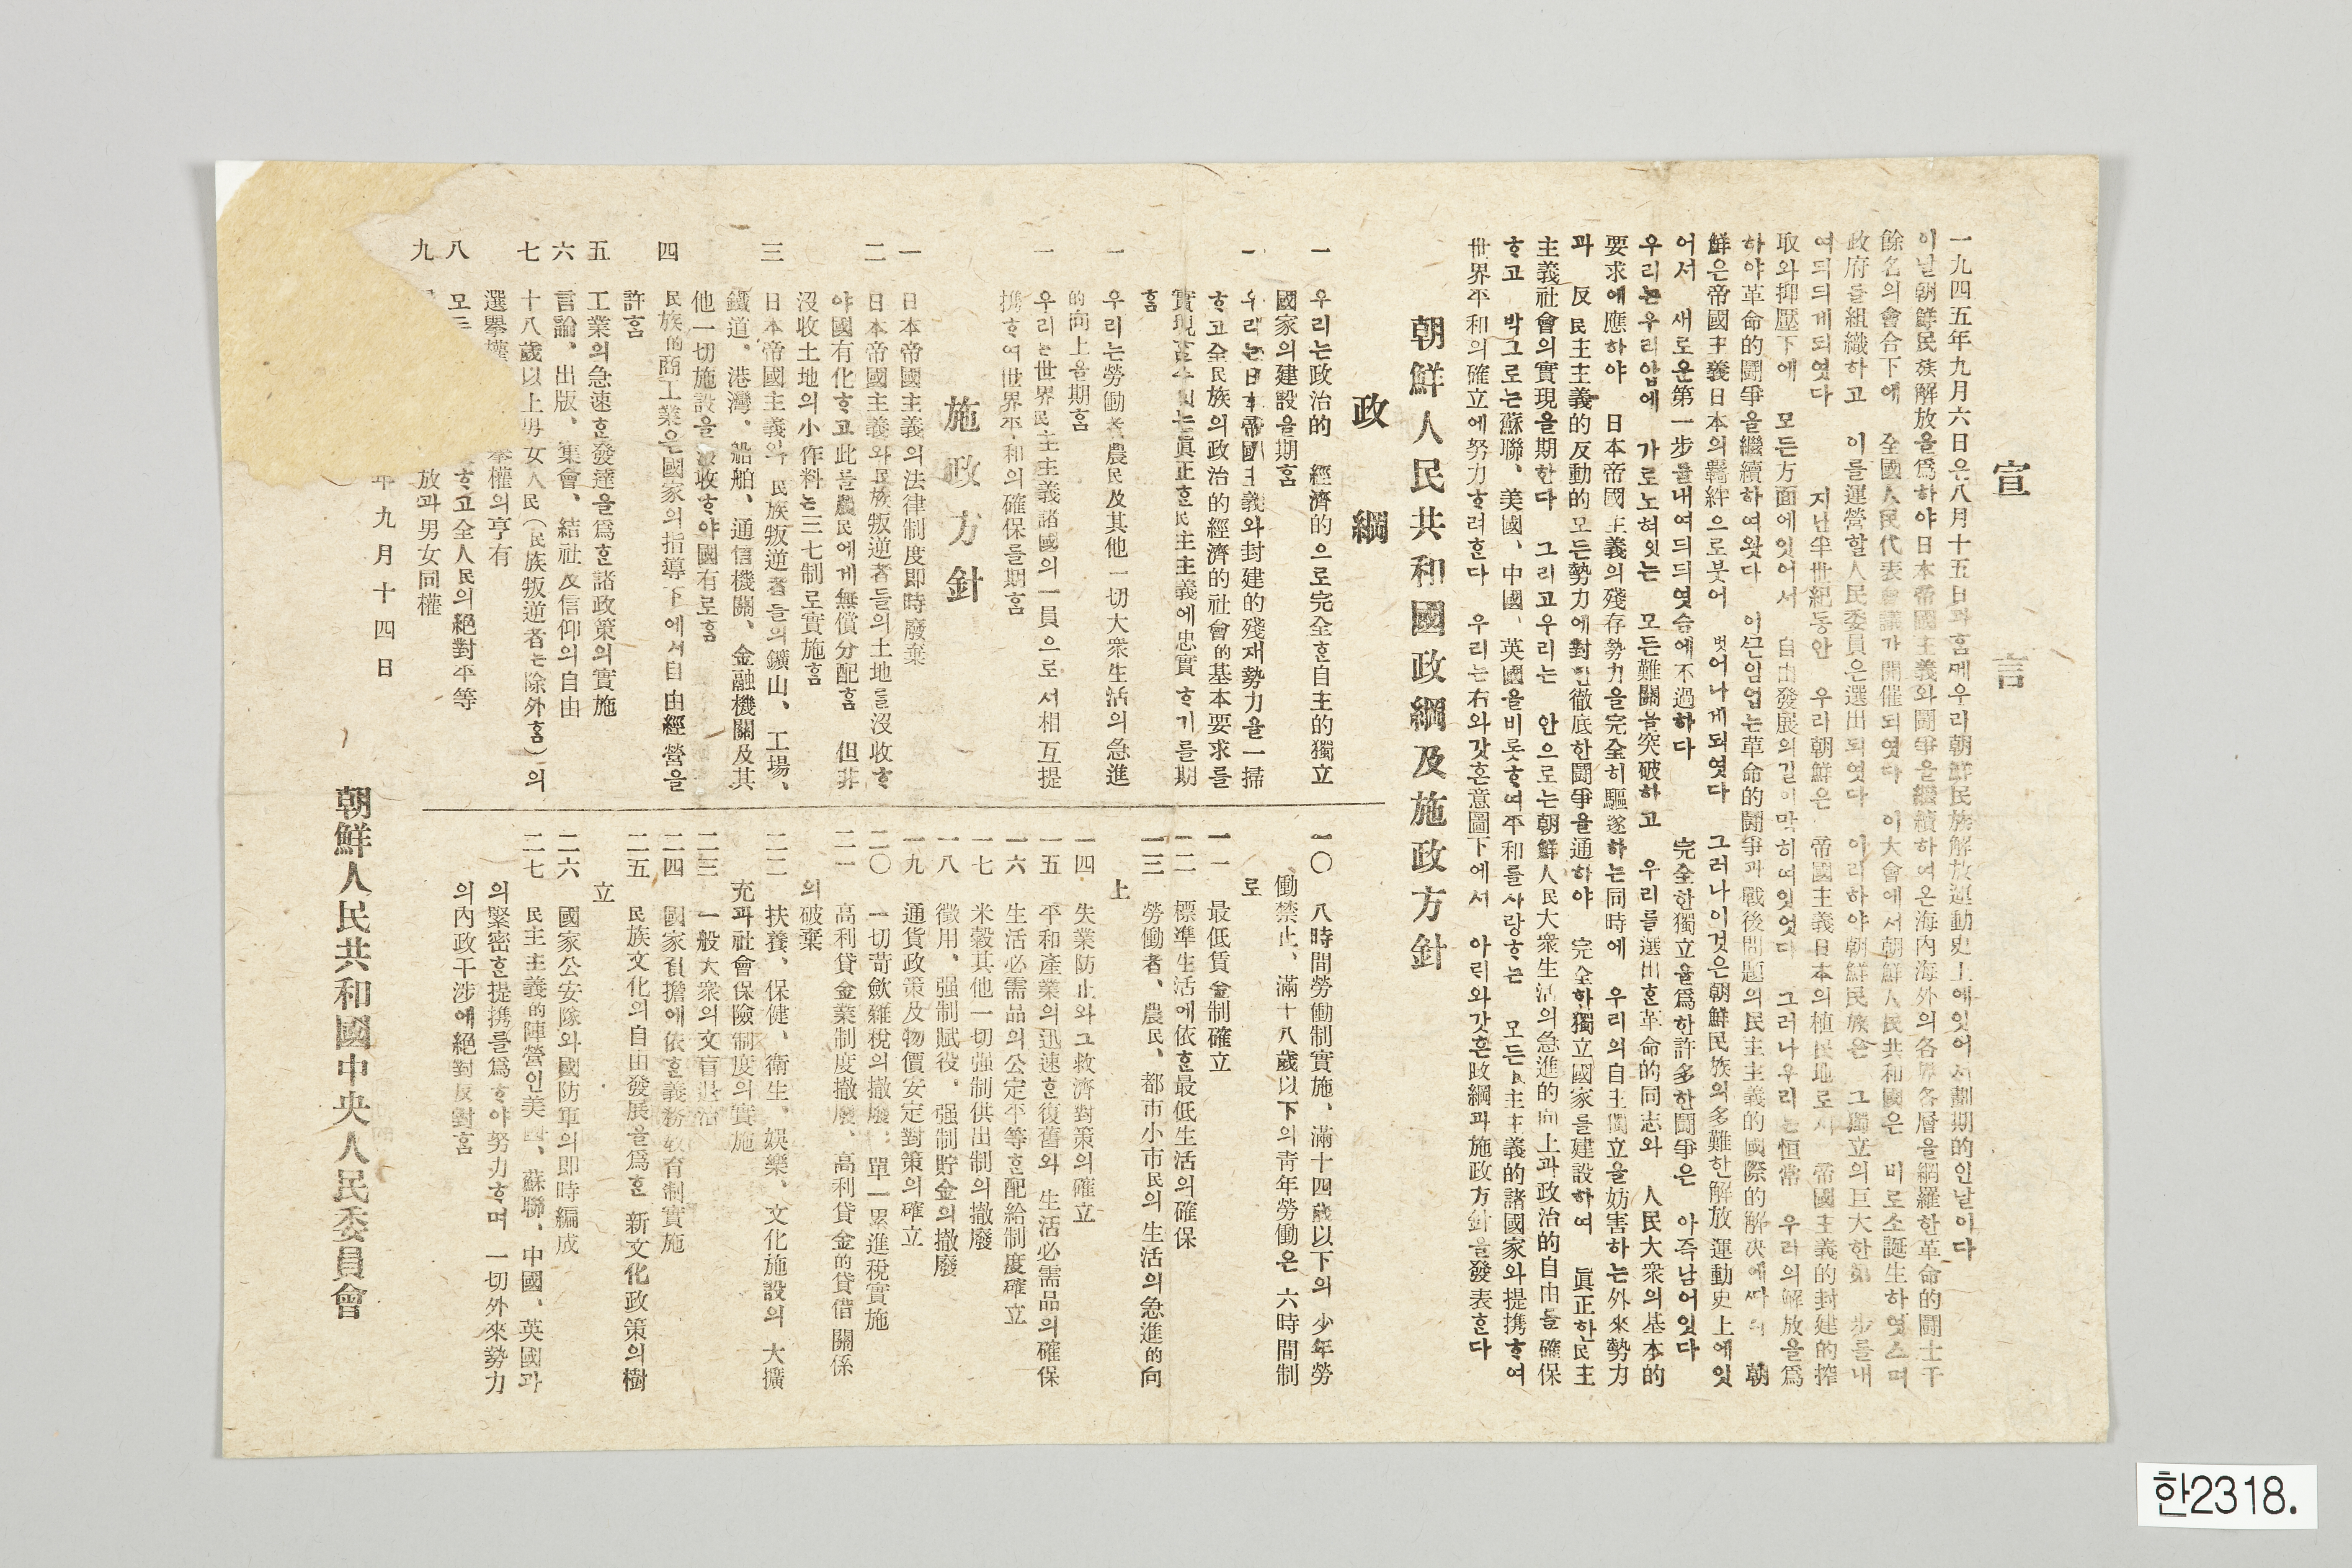 宣言
一九四五年九月六日은八月十五日과홈께우리朝鮮民族解放運動史上에잇어서劃期的인날이다
이날朝鮮民族解放을爲하야日本帝國主義와鬪爭을繼續하여온海內海外의各界各層을網羅한革命的鬪士千
餘名의會合下에 全國人民代表會議가開催되엿다 이大會에서朝鮮人民共和國은 비로소誕生하엿스며
政府를組織하고 이를運營할人民委員은選出되엿다 이리하야朝鮮民族은 그獨立의巨大한第一步를내
여듸듸게되엿다 지난半世紀동안 우리朝鮮은 帝國主義日本의植民地로서 帝國主義的封建的搾
取와抑壓下에 모든方面에잇어서 自由發展의길이막히여잇엇다 그러나우리는恒常 우리의解放을爲
하야革命的鬪爭을繼續하여왓다 이끈임업는革命的鬪爭과戰後問題의民主主義的國際的解决에따라 朝
鮮은帝國主義日本의羈絆으로붓어 벗어나게되엿다 그러나이것은朝鮮民族의多難한解放運動史上에잇
어서 새로운第一步를내여듸듸엿슴에不過하다 完全한獨立을爲한許多한鬪爭은 아즉남어잇다
우리는우리압에 가로노혀잇는 모든難關을突破하고 우리를選出ᄒᆞᆫ革命的同志와 人民大衆의基本的
要求에應하야 日本帝國主義의殘存勢力을完全히驅逐하는同時에 우리의自主獨立을妨害하는外來勢力
과 反民主主義的反動的모든勢力에對한徹底한鬪爭을通하야 完全한獨立國家를建設하여 眞正한民主
主義社會의實現을期한다 그리고우리는 안으로는朝鮮人民大衆生活의急進的向上과政治的自由를確保
ᄒᆞ고 박그로는蘇聯、美國、中國、英國을비롯ᄒᆞ여平和를사랑ᄒᆞ는 모든民主主義的諸國家와提携ᄒᆞ여
世界平和의確立에努力ᄒᆞ려ᄒᆞᆫ다 우리는右와갓ᄒᆞᆫ意圖下에서 아릭와갓ᄒᆞᆫ政綱과施政方針을發表ᄒᆞᆫ다
朝鮮人民共和國政綱及施政方針
政綱
一 우리는政治的 經濟的으로完全ᄒᆞᆫ自主的獨立
國家의建設을期홈
一 우리는日本帝國主義와封建的殘재勢力을一掃
ᄒᆞ고全民族의政治的經濟的社會的基本要求를
實現할수잇는眞正ᄒᆞᆫ民主主義에忠實ᄒᆞ기를期
홈
一 우리는勞働者農民及其他一切大衆生活의急進
的向上을期홈
一 우리는世界民主主義諸國의一員으로서相互提
携ᄒᆞ여世界平和의確保를期홈
施政方針
一 日本帝國主義의法律制度即時廢棄
二 日本帝國主義와民族叛逆者들의土地를沒收ᄒᆞ
야國有化ᄒᆞ고此를農民에게無償分配홈 但非
沒收土地의小作料는三七制로實施홈
三 日本帝國主義와 民族叛逆者들의鑛山、工場、
鐵道、港灣、船舶、通信機關、金融機關及其
他一切施設을沒收ᄒᆞ야國有로홈
四 民族的商工業은國家의指導下에서自由經營을
許홈
五 工業의急速ᄒᆞᆫ發達을爲ᄒᆞᆫ諸政策의實施
六 言論、出版、集會、結社及信仰의自由
七 十八歲以上男女人民(民族叛逆者는除外홈)의
選擧權 擧權의亨有
八 모든 ᄒᆞ고全人民의絕對平等
九 放과男女同權
一〇 八時間勞働制實施、滿十四歲以下의 少年勞
働禁止、滿十八歲以下의靑年勞働은 六時間制
로
一一 最低賃金制確立
一二 標準生活에依ᄒᆞᆫ最低生活의確保
一三 勞働者、農民、都市小市民의生活의急進的向
上
一四 失業防止와그救濟對策의確立
一五 平和產業의迅速ᄒᆞᆫ復舊와 生活必需品의確保
一六 生活必需品의公定平等ᄒᆞᆫ配給制度確立
一七 米穀其他一切强制供出制의撤廢
一八 徵用、强制賦役、强制貯金의撤廢
一九 通貨政策及物價安定對策의確立
二〇 一切苛歛雜稅의撤廢、單一累進稅實施
二一 高利貸金業制度撤廢、高利貸金的貸借關係
의破棄
二二 扶養、保健、衛生、娛樂、文化施設의 大擴
充과社會保險制度의實施
二三 一般大衆의文盲退治
二四 國家負擔에依ᄒᆞᆫ義務敎育制實施
二五 民族文化의自由發展을爲ᄒᆞᆫ 新文化政策의樹
立
二六 國家公安隊와國防軍의即時編成
二七 民主主義的陣營인美國、蘇聯、中國、英國과
의緊密ᄒᆞᆫ提携를爲ᄒᆞ야努力ᄒᆞ며 一切外來勢力
의內政干涉에絕對反對홈
年九月十四日
朝鮮人民共和國中央人民委員會
한2318.